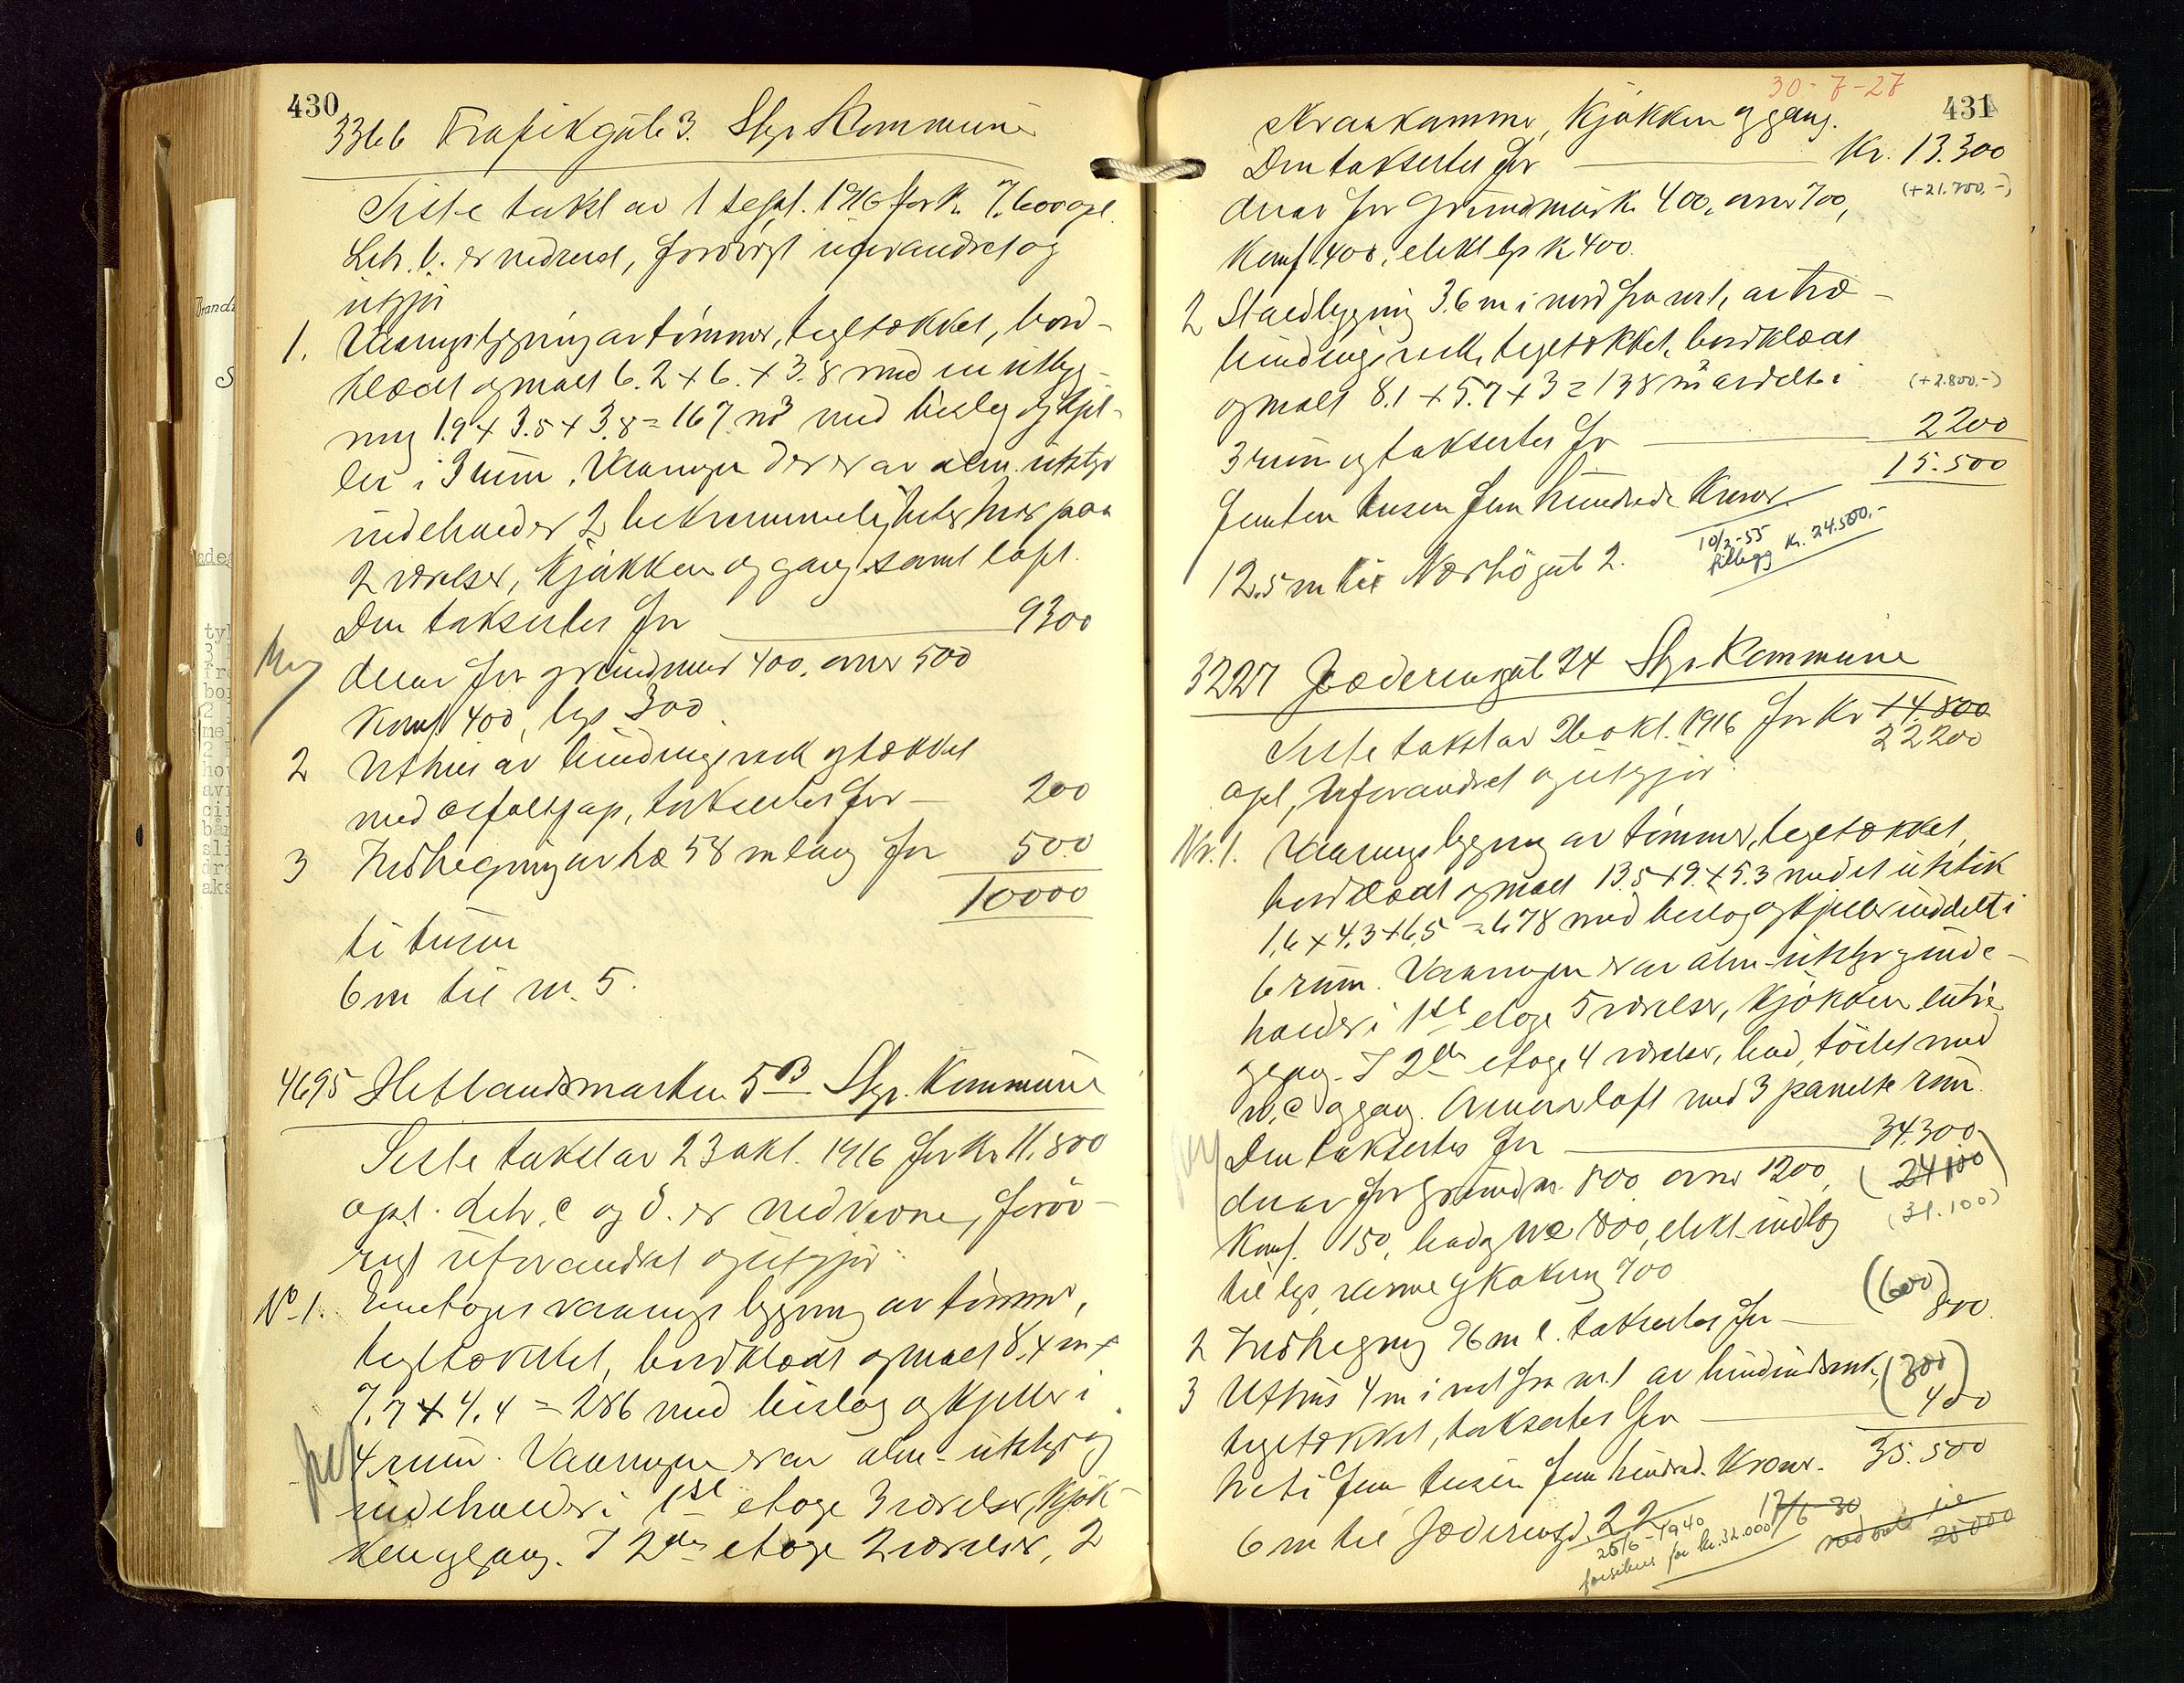 430
3366 Trafikgate 3. Stgr Kommune
Siste takst av 1 sept. 1916 for kr. 7.600 opl.
Litr. b. er nedrevet, forøvrigt uforandret og
utgjør
1. Vaaningsbygning av tømmer, tegltækket, bord-
klædt og malt 6.2 x 6. x 3.8 med en utbyg-
ning 1.9 x 3.5 x 3.8 = 167 m3 med bislag og kjel-
ler i 3 rum. Vaaningen der er av alm. utstyr
indeholder 2 bekvemmeligheter hver paa
2 værelser, kjøkken og gang samt loft.
Den takseres for 9300
derav for grundmur 400, ovner 500
Komf. 400, lys 300
2 Uthus av bindingsverk og tækket
med asfaltpap, takseres for – 200
3 Indhegning av træ 58 m lang for 500
10000
ti tusen
6 m til nr. 5.
4695 Hetlandsmarken 5B Stgr. Kommune
Siste takst av 23 okt. 1916 for kr. 11.800
opl. Litr. c og d. er nedrevne, forøv-
rigt uforandret og utgjør:
No 1. Enetages vaaningsbygning av tømmer,
tegltækket, bordklædt og malt 8.4 m x
7.7 x 4.4 = 286 med bislag og kjeller i
4 rum. Vaaningen er av alm. utstyr og
indeholder i 1ste etage 3 værelser, kjøk-
ken og gang. I 2den etage 2 værelser, 2
30-7-27
431
kvamkammer, kjøkken og gang.
Den takseres for Kr. 13.300
(+21.700.-)
derav for Grundmur kr. 400, ovner 700,
Komf. 400, elekt. lys kr 400.
2 Staldbygning 3.6 m i nord fra nr. 1, av træ-
bindingsverk, tegltækket, bordklædt
og malt 8.1 x 5.7 x 3 = 138 m3 avdelt i
(+2.800.-)
3 rum og takseres for 2200
15.500
Femten tusen fem hundrede Kroner.
10/2-55
tillegg kr. 24.500.-
12.5 m til Nørhøgate 2.
3227 Jæderensgate 24 Stgr. Kommune
Siste takst av 26 okt. 1916 for Kr 14.800
22200
opl, uforandret og utgjør:
Nr. 1. Vaaningsbygning av tømmer, tegltækket,
bordklædt og malt 13.5 x 9. x 5.3 med et utstik
1,6 x 4.3 x 6,5 = 678 med bislag og kjeller inddelt i
6 rum. Vaaningen er av alm. utstyr og inde-
holder i 1ste etage 5 værelser, kjøkken entré
og gang. I 2den etage 4 værelser, bad, toilet med
w.c og gang. Ovenover loft med 3 panelte rum.
Den takseres for 34.300
(24100)
(31.100)
derav for Grundm. 800 ovner 1200,
Komf. 150, bad og wc 1800, elekt. indlæg
til lys, varme og kokning 700
2 Indhegning 96 m l. takseres for – (600) 800.
3 Uthus 4 m i vest fra nr. 1 av bindindsverk, (300)
tegltækket, takseres for 400
35.500
treti fem tusen fem hundred. Kroner.
6 m til Jæderensgd. 22
17/6-30
nedsat til
25000
26/6-1940
forsikres for kr. 32.000